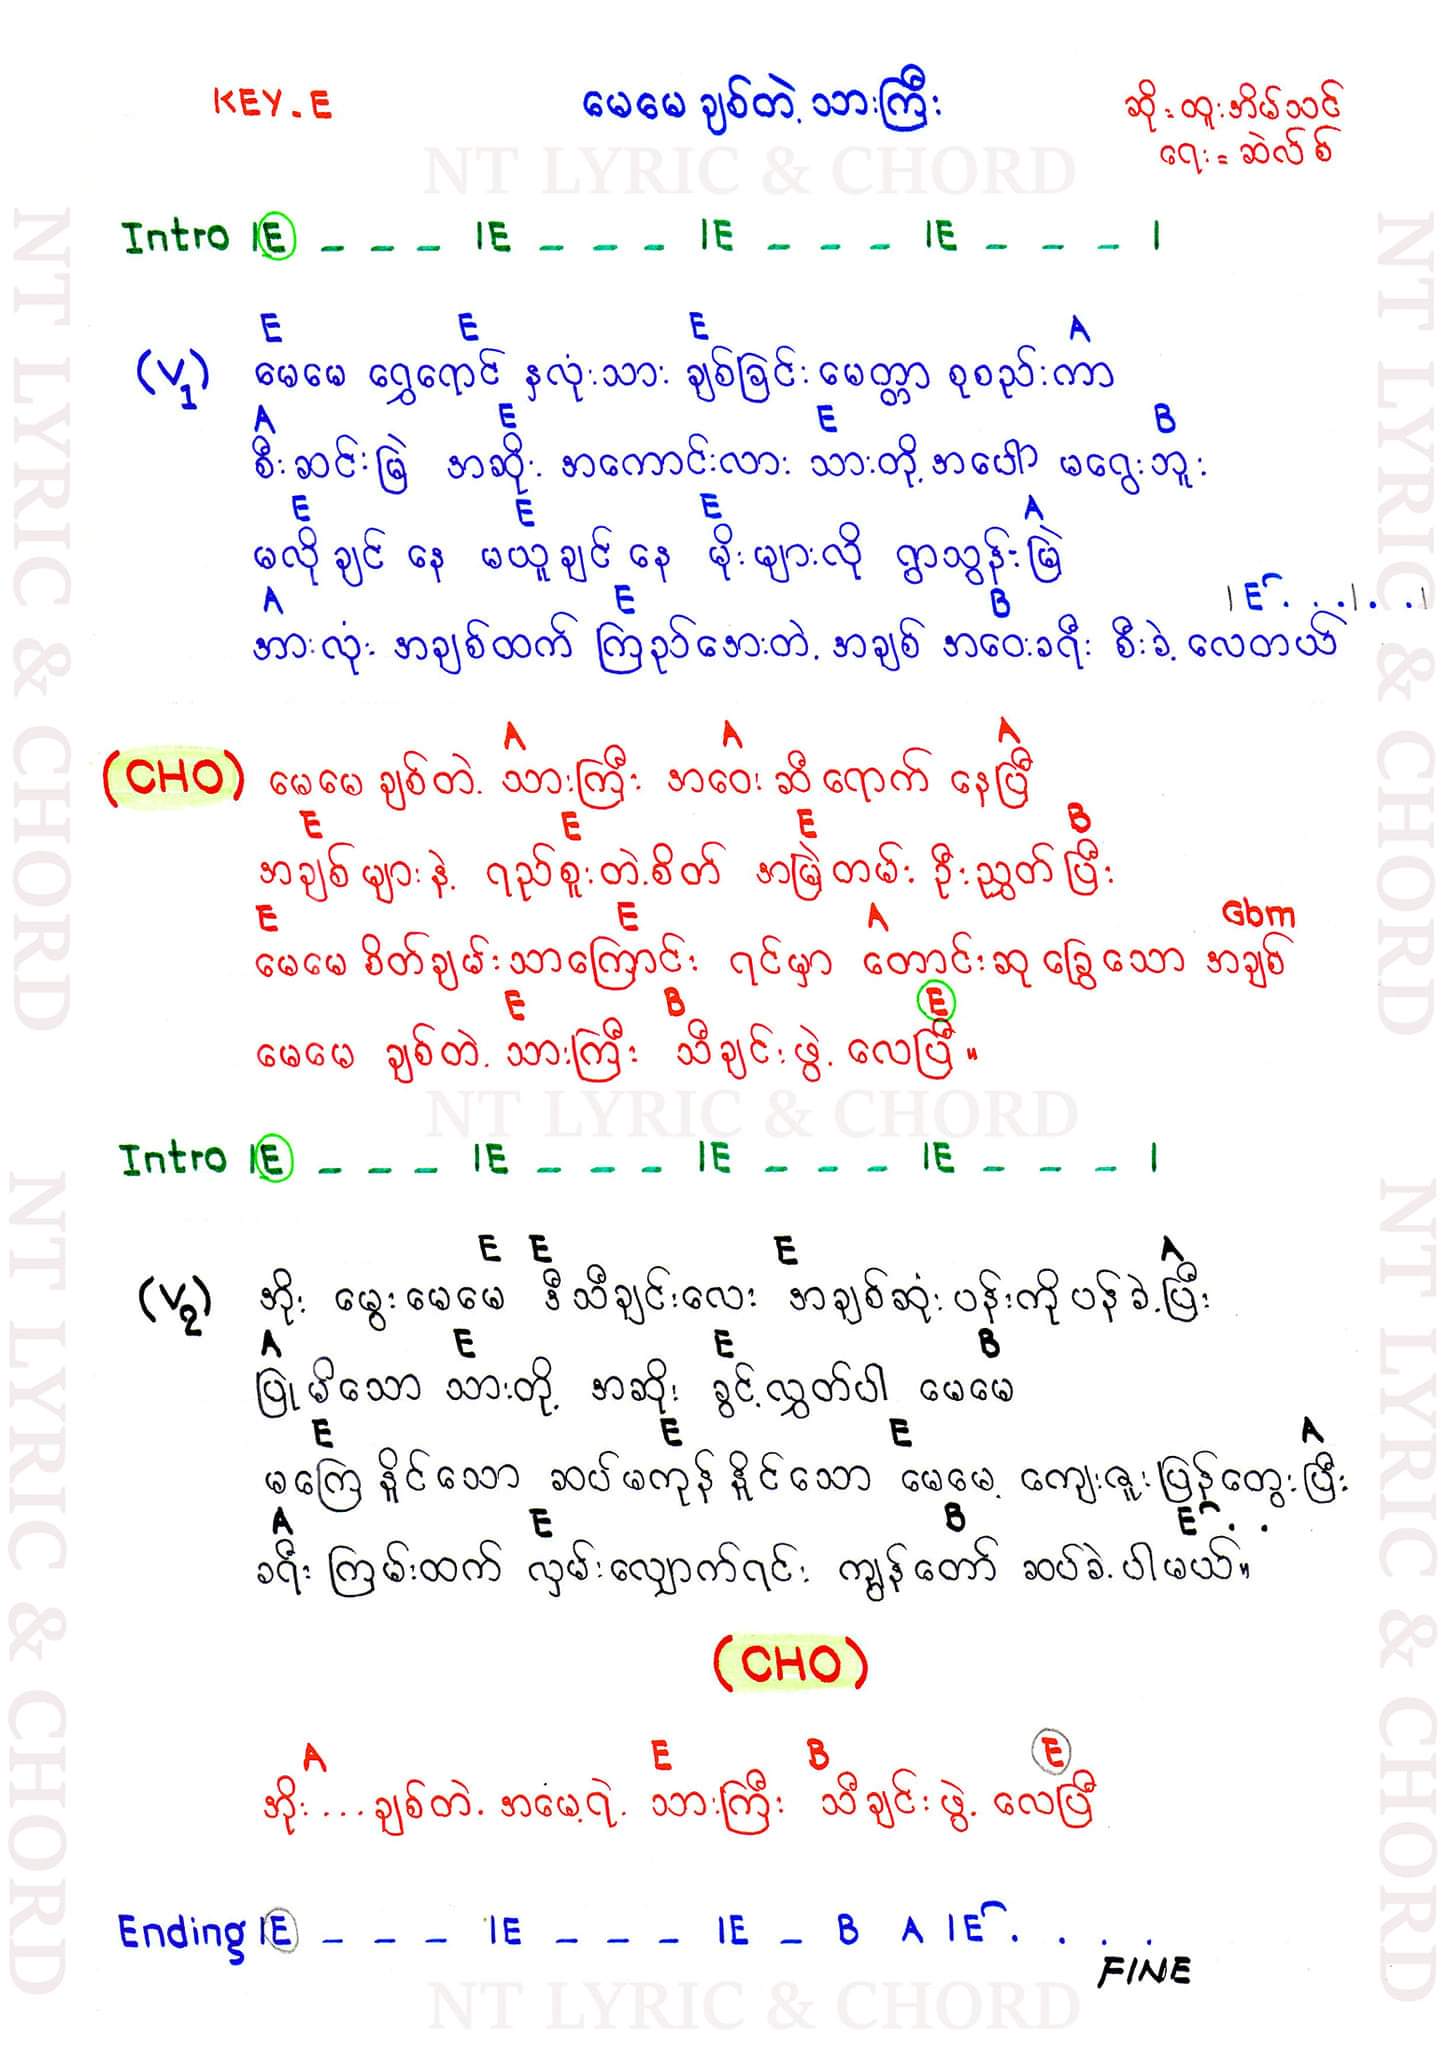 KEY. E
မေမေ ချစ်တဲ့ သားကြီး
ဆို = ထူးအိမ်သင်
ရေး = ဆဲလ်စ်
NT LYRIC & CHORD
Intro |E _ _ _ |E _ _ _ |E _ _ _ |E _ _ _ |
E E E A
(V1) မေမေ ရွှေရောင် နှလုံးသား ချစ်ခြင်း မေတ္တာ စုစည်းကာ
A E E B
စီးဆင်းမြဲ အဆိုး အကောင်းလား သားတို့ အပေါ် မရွေးဘူး
E E E A
မလိုချင် နေ မယူချင် နေ မိုးများလို ရွာသွန်းမြဲ
A E B |E . . . | . . . |
အားလုံး အချစ်ထက် ကြည်အေးတဲ့ အချစ် အဝေးခရီး စီးခဲ့ လေတယ်
A A A
(CHO) မေမေ ချစ်တဲ့ သားကြီး အဝေး ဆီ ရောက် နေပြီ
E E E B
အချစ်များနဲ့ ရည်စူးတဲ့စိတ် အမြဲတမ်း ဦးညွှတ်ပြီး
E E A Gbm
မေမေ စိတ်ချမ်းသာကြောင်း ရင်မှာ တောင်းဆု ခြွေသော အချစ်
E B E
မေမေ ချစ်တဲ့ သားကြီး သီချင်းဖွဲ့ လေပြီ။
NT LYRIC & CHORD
Intro |E _ _ _ |E _ _ _ |E _ _ _ |E _ _ _ |
E E E A
(V2) အိုး မွေးမေမေ ဒီသီချင်းလေး အချစ်ဆုံး ပန်းကိုပန်ခဲ့ပြီး
A E E B
ပြုမိသော သားတို့ အဆိုး ခွင့်လွှတ်ပါ မေမေ
E E E A
မကြေနိုင်သော ဆပ်မကုန်နိုင်သော မေမေ့ ကျေးဇူးပြန်တွေးပြီး
A E B E . .
ခရီး ကြမ်းထက် လှမ်းလျှောက်ရင်း ကျွန်တော် ဆပ်ခဲ့ပါမယ်။
(CHO)
A E B E
အိုး ... ချစ်တဲ့ အမေ့ရဲ့ သားကြီး သီချင်းဖွဲ့ လေပြီ
Ending |E _ _ _ |E _ _ _ |E _ B A |E . . . .
FINE
NT LYRIC & CHORD
NT LYRIC & CHORD
NT LYRIC & CHORD
NT LYRIC & CHORD
NT LYRIC & CHORD